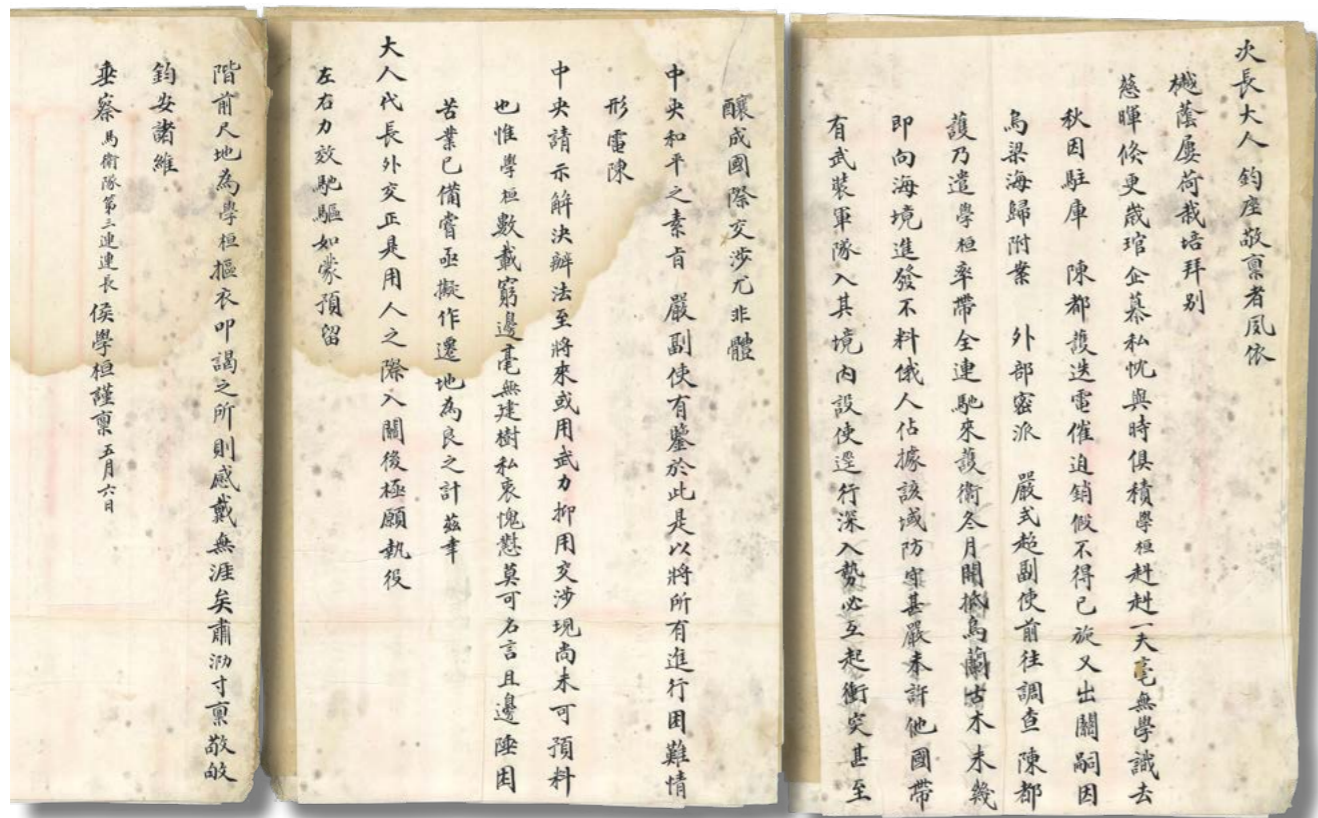 次長大人 鈞座敬稟者風依
樾蔭屢荷栽培拜别
慈暉倏更歲琯企慕私忱與時俱積學桓赳赳一夫毫無學識去
秋因駐庫 陳都護迭電催迫銷假不得已旋又出關嗣因
烏梁海歸附業 外部密派 嚴式超副使前往調查陳都
護乃遣學桓率帶全連馳來護衛今月開抵烏蘭古木未幾
即向海境進發不料俄人佔據該域防守甚嚴未許他國帶
有武裝軍隊入其境內設使逕行深入勢必互起衝突甚至
釀成國際交涉尤非體
中央和平之素旨 嚴副使有鑒於此是以將所有進行困難情
形電陳
中央請示解決辦法至將來或用武力抑用交涉現尚未可預料
也惟學桓數載窮邊毫無建樹私衷愧懟莫可名言且邊陲困
苦業已備嘗亟擬作遷地為良之計茲幸
大人代長外交正是用人之際入關後極願執役
左右力效馳驅如蒙預留
階前尺地為學桓摳衣叩謁之所則感戴無涯矣肅泐寸稟敬敂
鈞安諸維
垂察 馬衛隊第三連連長 侯學桓謹稟 五月六日